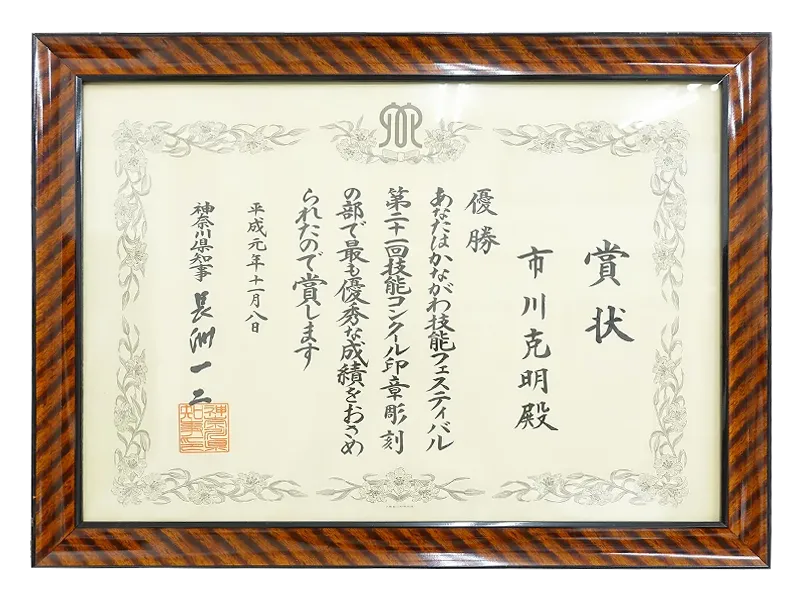 賞状
市川克明殿
優勝
あなたはかながわ技能フェスティバル
第二十一回技能コンクール印章彫刻
の部で最も優秀な成績をおさめ
られたので賞します
平成元年十一月八日
神奈川県知事 長洲一二